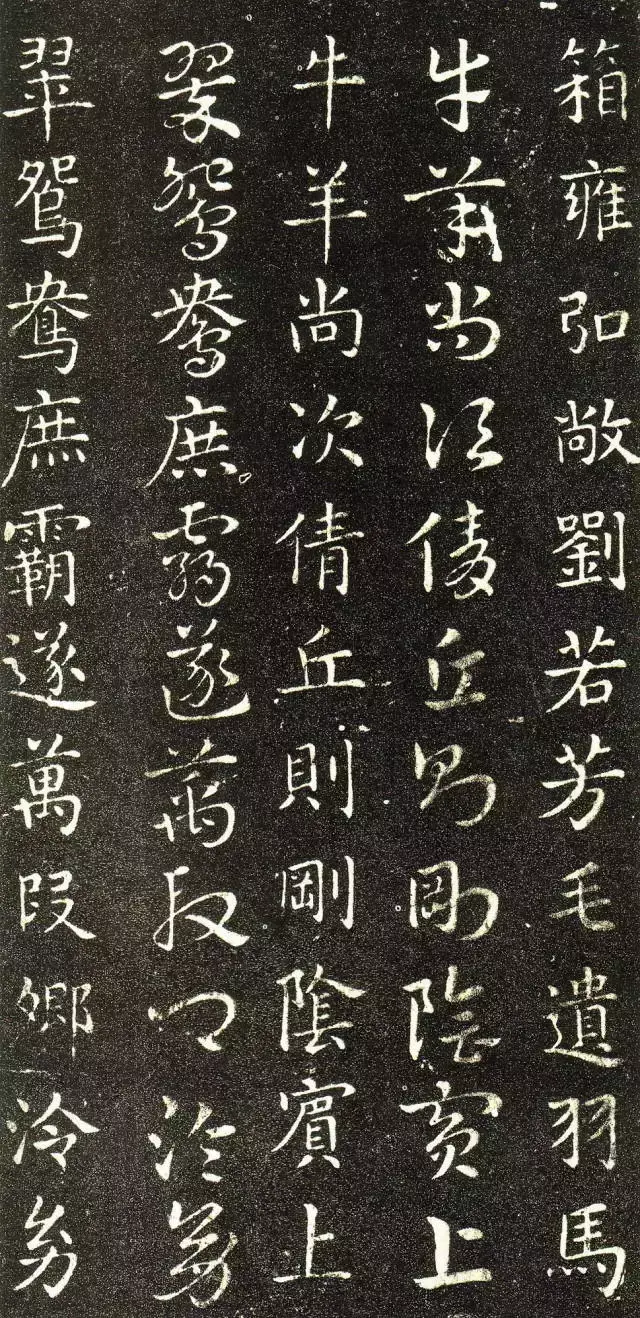 箱雍弘敞劉若芳毛遺羽馬
牛羊尚次倩丘則剛陰賓上
牛羊尚次倩丘則剛陰賓上
翠鴛鴦庶霸遂萬段卿冷幼
翠鴛鴦庶霸遂萬段卿冷幼